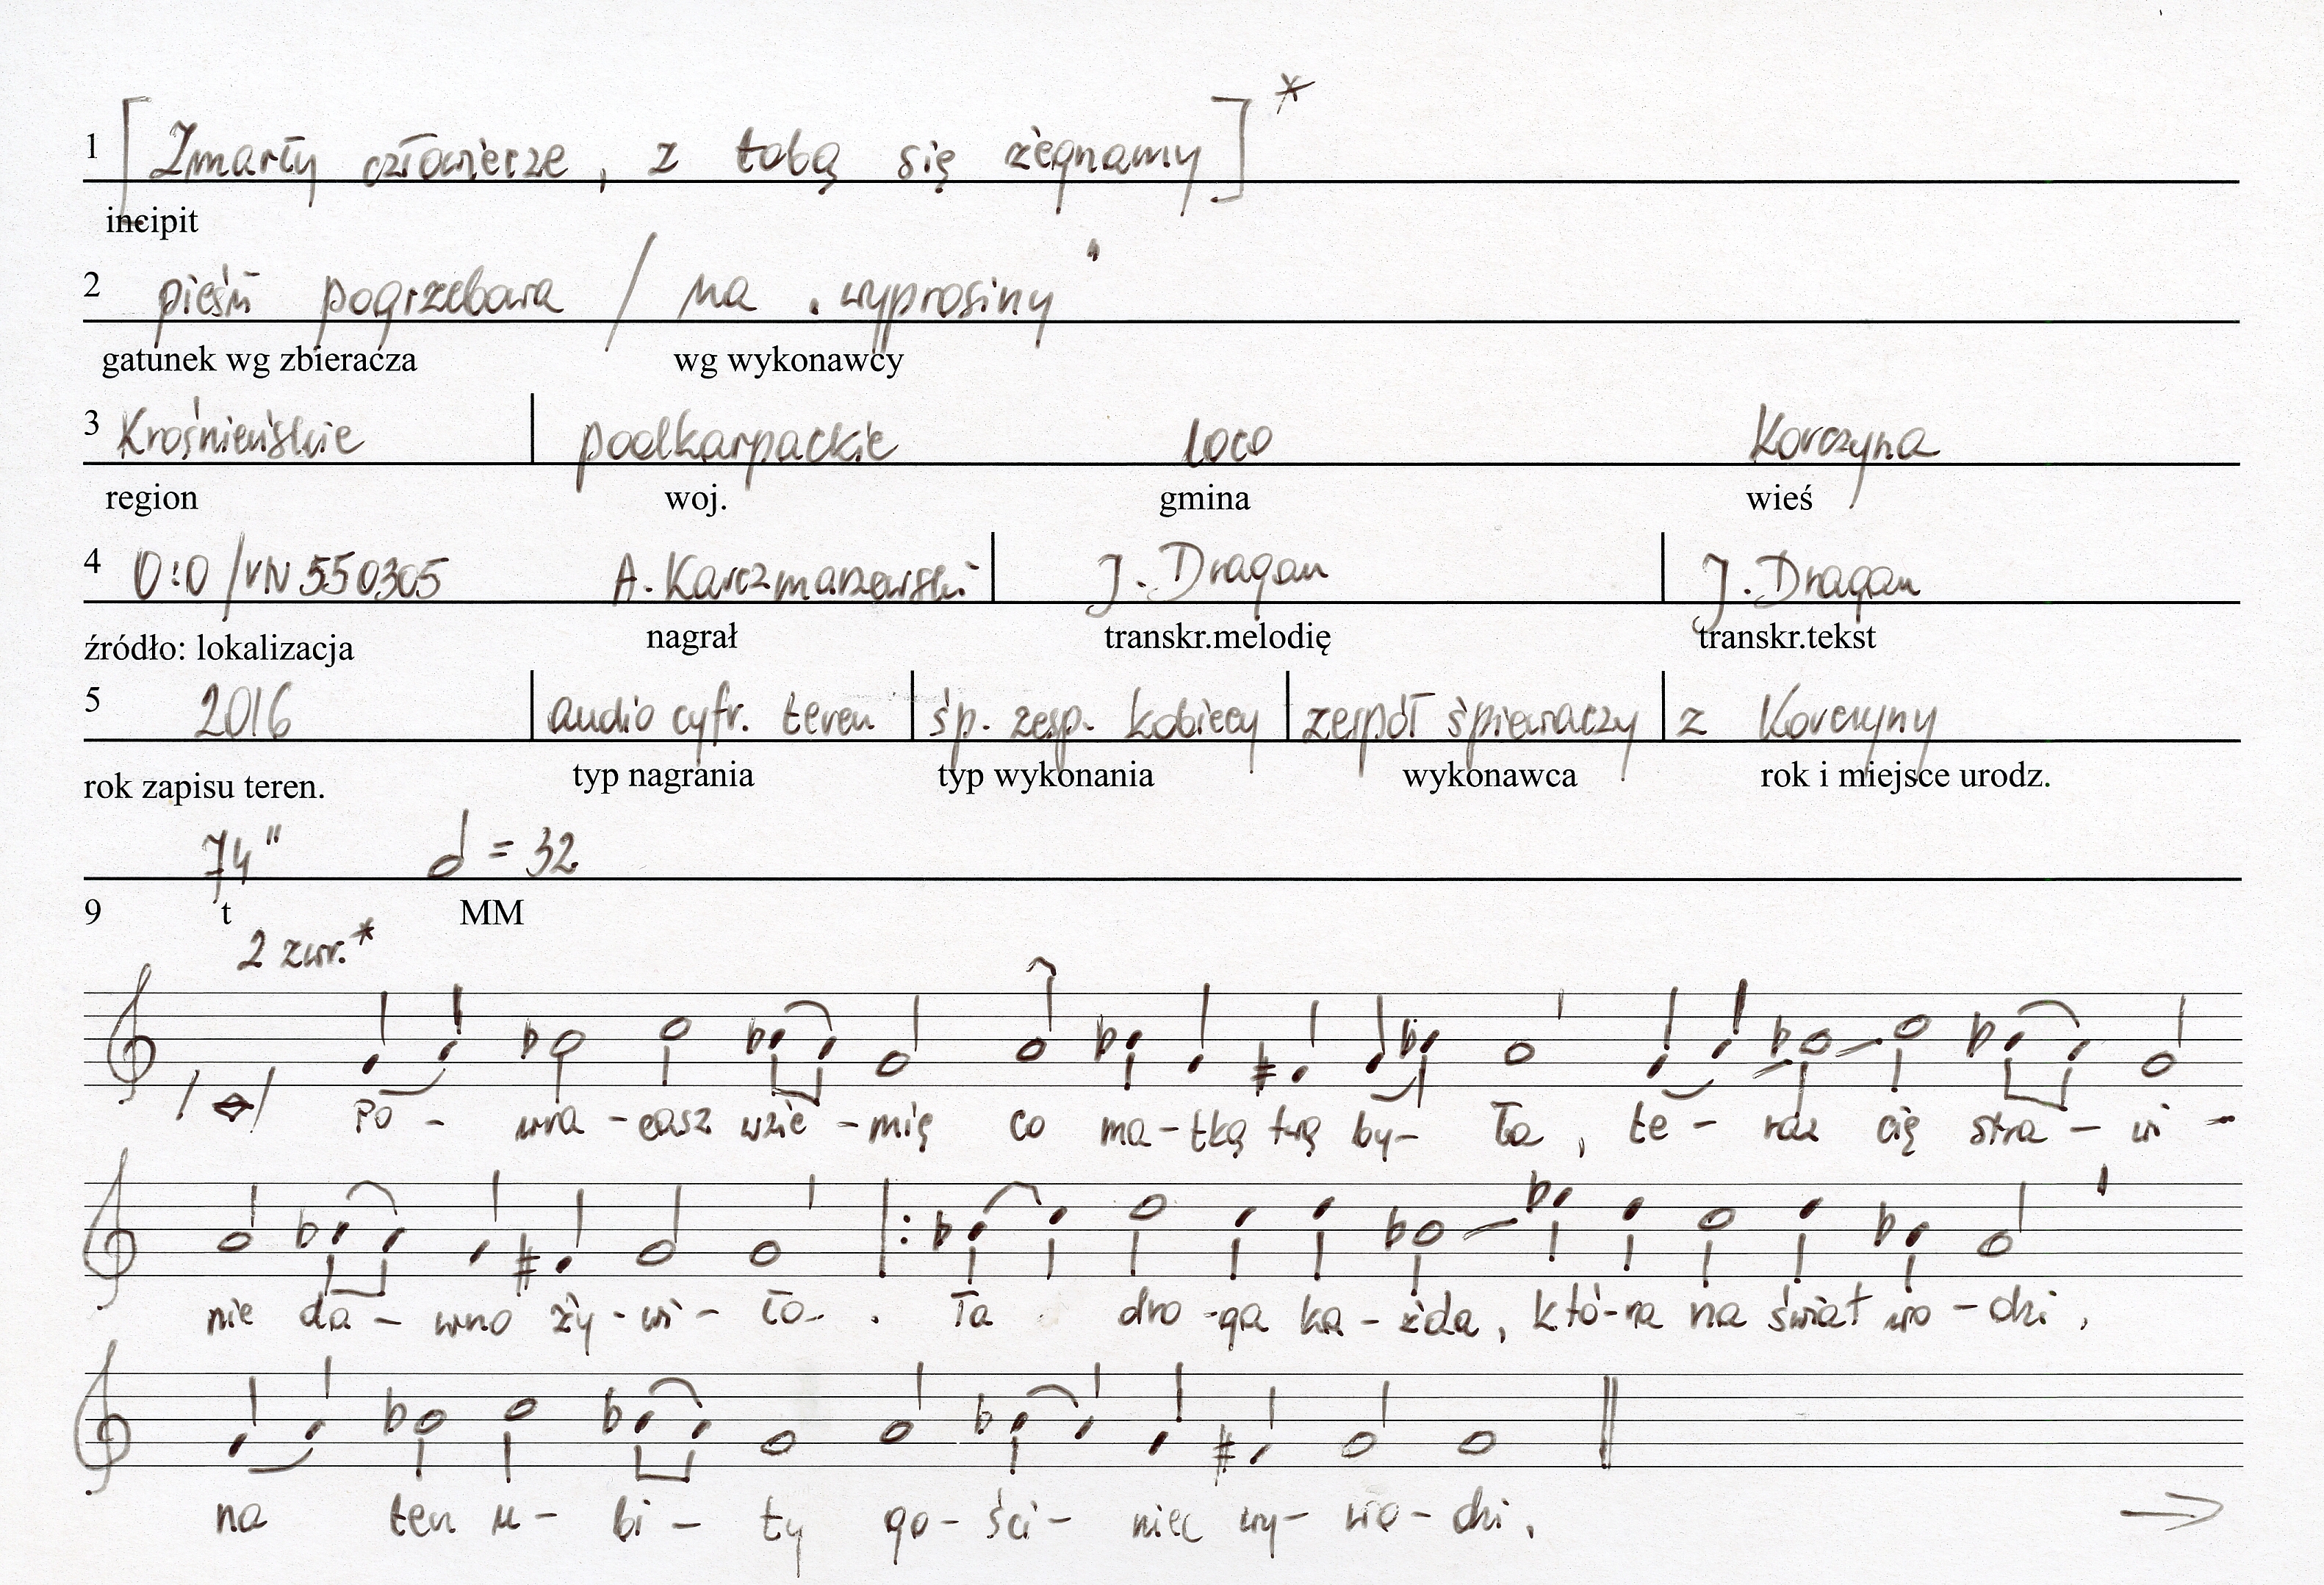 1 [Zmarły człowiecze, z tobą się żegnamy]*
incipit
2 pieśń pogrzebowa / na „wyprosiny"
gatunek wg zbieracza wg wykonawcy
3 Krośnieńskie podkarpackie loco Korczyna
region woj. gmina wieś
4 0:0/VN 550305 A. Karczmarzewski J. Dragan J. Dragan
źródło: lokalizacja nagrał transkr.melodię transkr.tekst
5 2016 audio cyfr. teren śp. zesp. kobiecy zespół śpiewaczy z Korczyny
rok zapisu teren. typ nagrania typ wykonania wykonawca rok i miejsce urodz.
74" = 32
9 t MM
2 zwr.*
Po - wra - casz wzie - mię co ma - tką twą by - ła, te - raz cię stra - wi -
nie da - wno ży - wi - ło. Ta dro - ga ka - żda, któ - ra na świat wo - dzi,
na ten u - bi - ty go - ści - niec wy - wo - dzi.